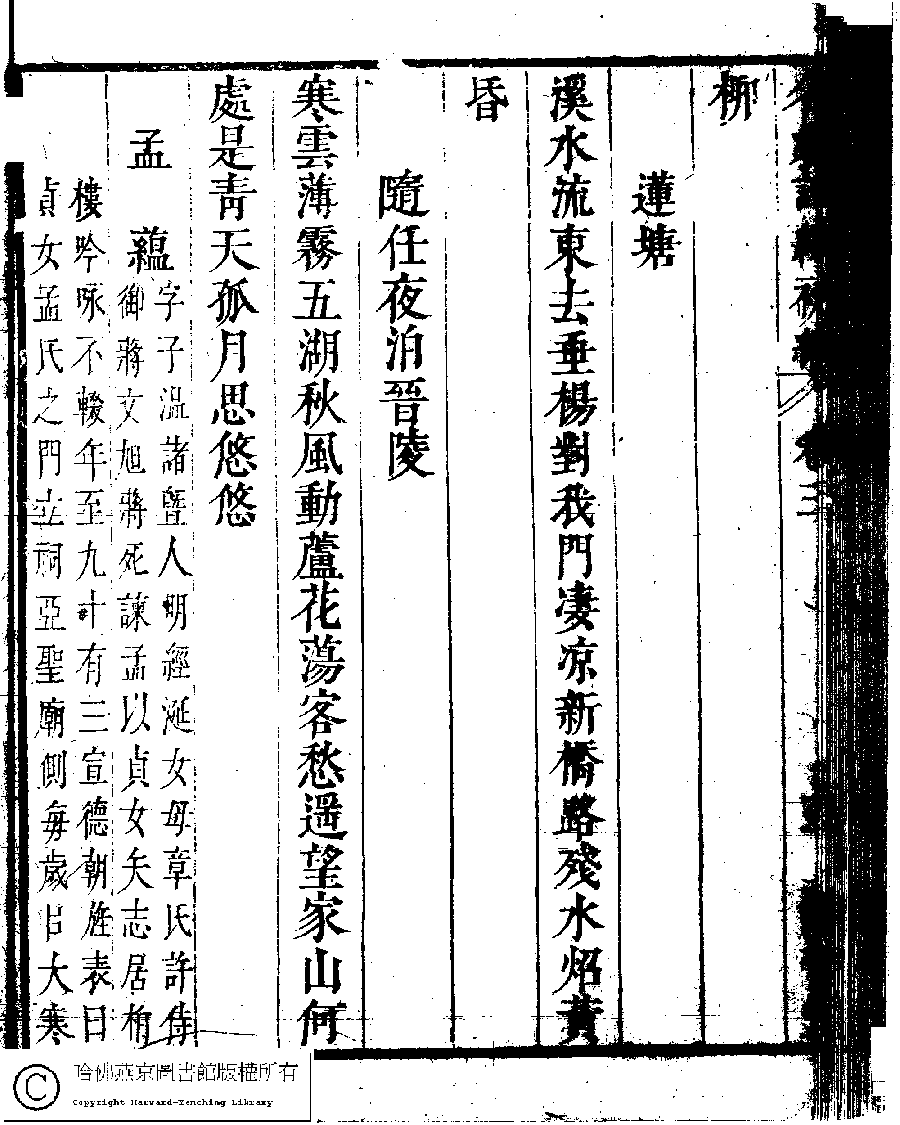 柳
蓮塘
溪水流東去垂楊對我門凄凉新橋路殘水炤黃
昏
隨任夜泊晉陵
寒雲薄霧五湖秋風動蘆花蕩客愁遥望家山何
處是青天孤月思悠悠
孟蘊
字子溫諸暨人明經涎女母章氏許侍
御蔣文旭蔣死諫孟以貞女矢志居柏
樓吟咏不輟年至九十有三宣德朝旌表曰
貞女孟氏之門立祠亞聖廟側每歲日大寒
哈佛燕京圖書館版權所有
Copyright Harvard-Yenching Library